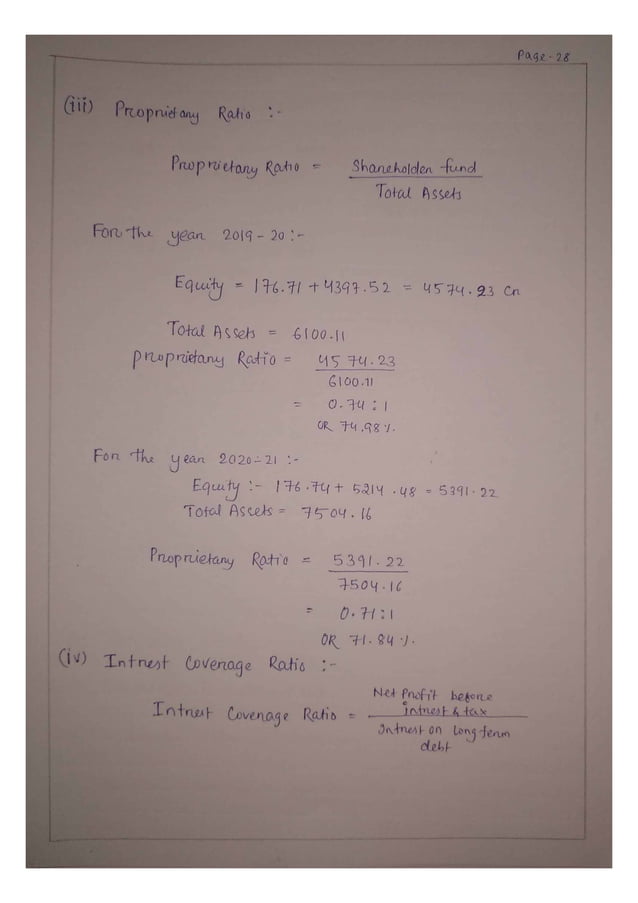 Page-28
(iii) Proprietary Ratio :-
Proprietary Ratio = Shareholder fund
Total Assets
For the year 2019-20 :-
Equity = 176.71 + 4397.52 = 4574.23 Cr
Total Assets = 6100.11
proprietary Ratio = 4574.23
6100.11
= 0.74 : 1
OR 74.98 %.
For the year 2020-21 :-
Equity :- 176.74 + 5214.48 = 5391.22
Total Assets = 7504.16
Proprietary Ratio = 5391.22
7504.16
= 0.71 : 1
OR 71.84 %.
(iv) Intrest Coverage Ratio :-
Intrest Coverage Ratio = Net Profit before
intrest & tax
Intrest on long term
debt